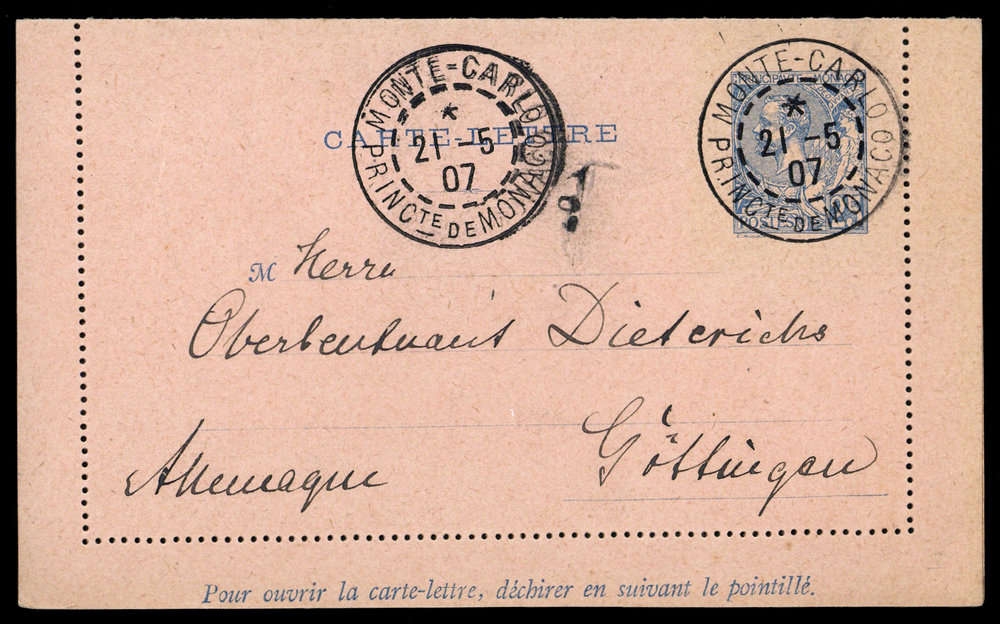 MONTE-CARLO
*
21 -5
07
PRINCTE DE MONACO
MONTE-CARLO
*
21 -5
07
PRINCTE DE MONACO
PRINCIPAUTE MONACO
POSTES
CARTE-LETTRE
M Herrn
Oberleutnant Dieterichs
Göttingen
Allemagne
Pour ouvrir la carte-lettre, déchirer en suivant le pointillé.